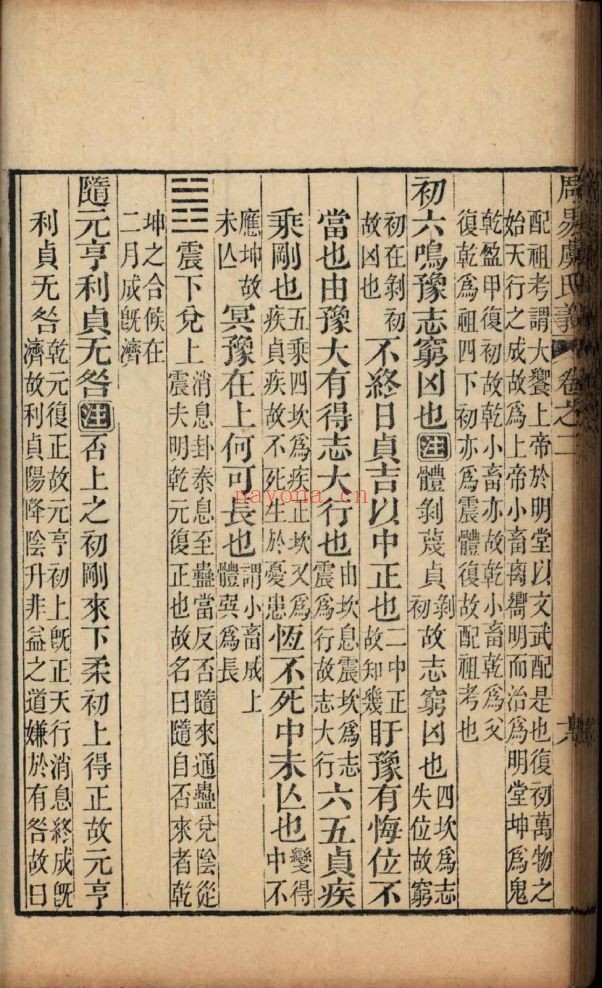 周易虞氏義 卷之二 六
配祖考謂大饗上帝於明堂以文武配是也復初萬物之
始天行之成故爲上帝小畜离嚮明而治爲明堂坤爲鬼
乾盈甲復初故乾小畜亦故乾小畜乾爲父
復乾爲祖四下初亦爲震體復故配祖考也
初六鳴豫志窮凶也注體剝蔑貞剝初故志窮凶也四坎爲志失位故窮
初在剝初故凶也不終日貞吉以中正也二中正故知幾盱豫有悔位不
當也由豫大有得志大行也由坎息震坎爲志震爲行故志大行六五貞疾
乘剛也五乘四坎爲疾正坎又爲疾貞疾故不死生於憂患恆不死中未亾也變得中不
應坤故未亾冥豫在上何可長也謂小畜成上體巽爲長
䷐震下兌上消息卦泰息至蠱當反否隨來通蠱兌陰從震夫明乾元復正也故名曰隨自否來者乾
坤之合候在二月成旣濟
隨元亨利貞无咎注否上之初剛來下柔初上得正故元亨
利貞无咎乾元復正故元亨初上旣正天行消息終成旣濟故利貞陽降陰升非益之道嫌於有咎故曰
nayona.cn